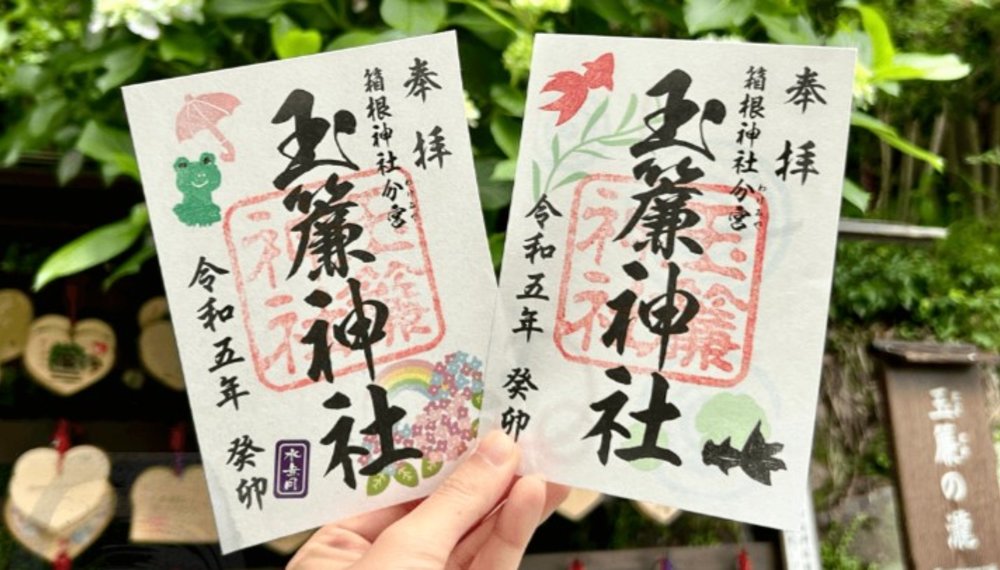 奉拝
箱根神社分宮
玉簾神社
玉簾神社
令和五年
癸卯
水無月
奉拝
箱根神社分宮
わけみや
玉簾神社
玉簾神社
令和五年
癸卯
玉簾の瀧